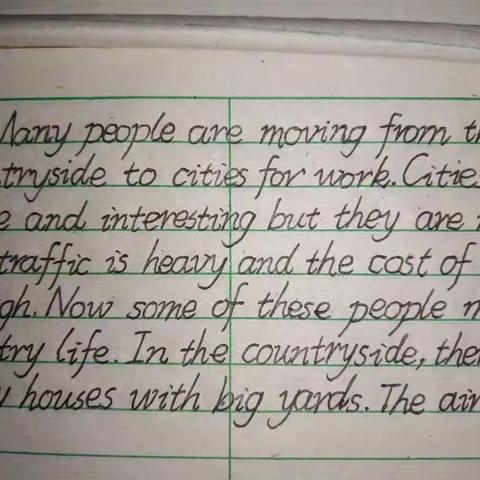 Many people are moving from t
tryside to cities for work. Citie
e and interesting but they are
traffic is heavy and the cost of
gh. Now some of these people m
try life. In the countryside, the
y houses with big yards. The air